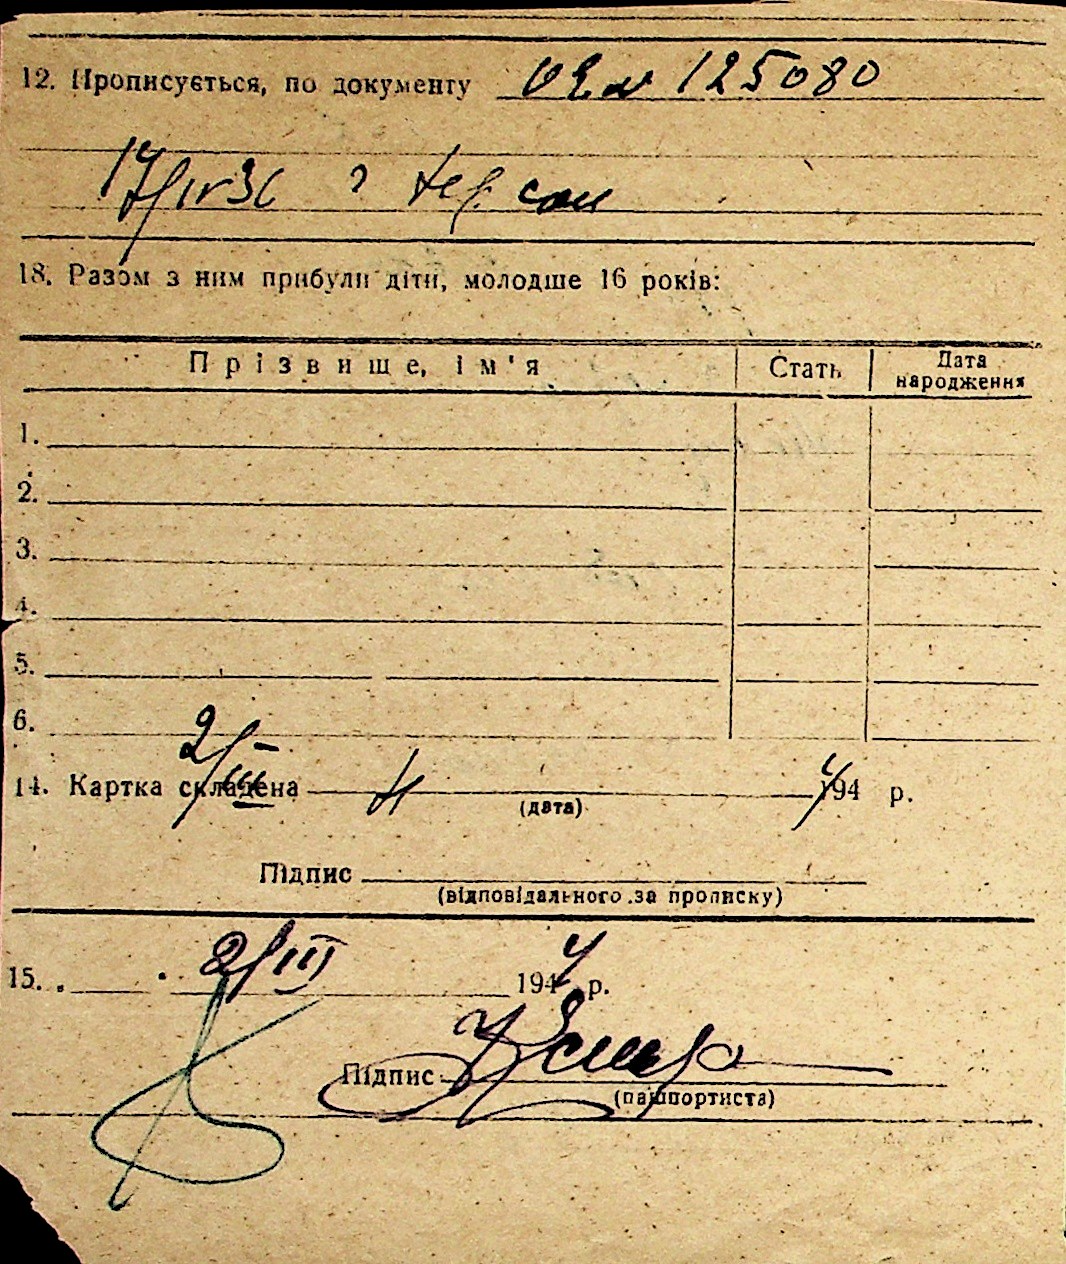 12. Прописується, по документу 125080
17/IV 36 г Херсон
18. Разом з ним прибули діти, молодше 16 років:
Прізвище, ім'я Стать Дата народження
1.
2.
3.
4.
5.
6.
14. Картка складена 2/III 194 4 р.
(дата)
Підпис
(відповідального за прописку)
15. 2/III 1944 р.
Підпис
(пашпортиста)